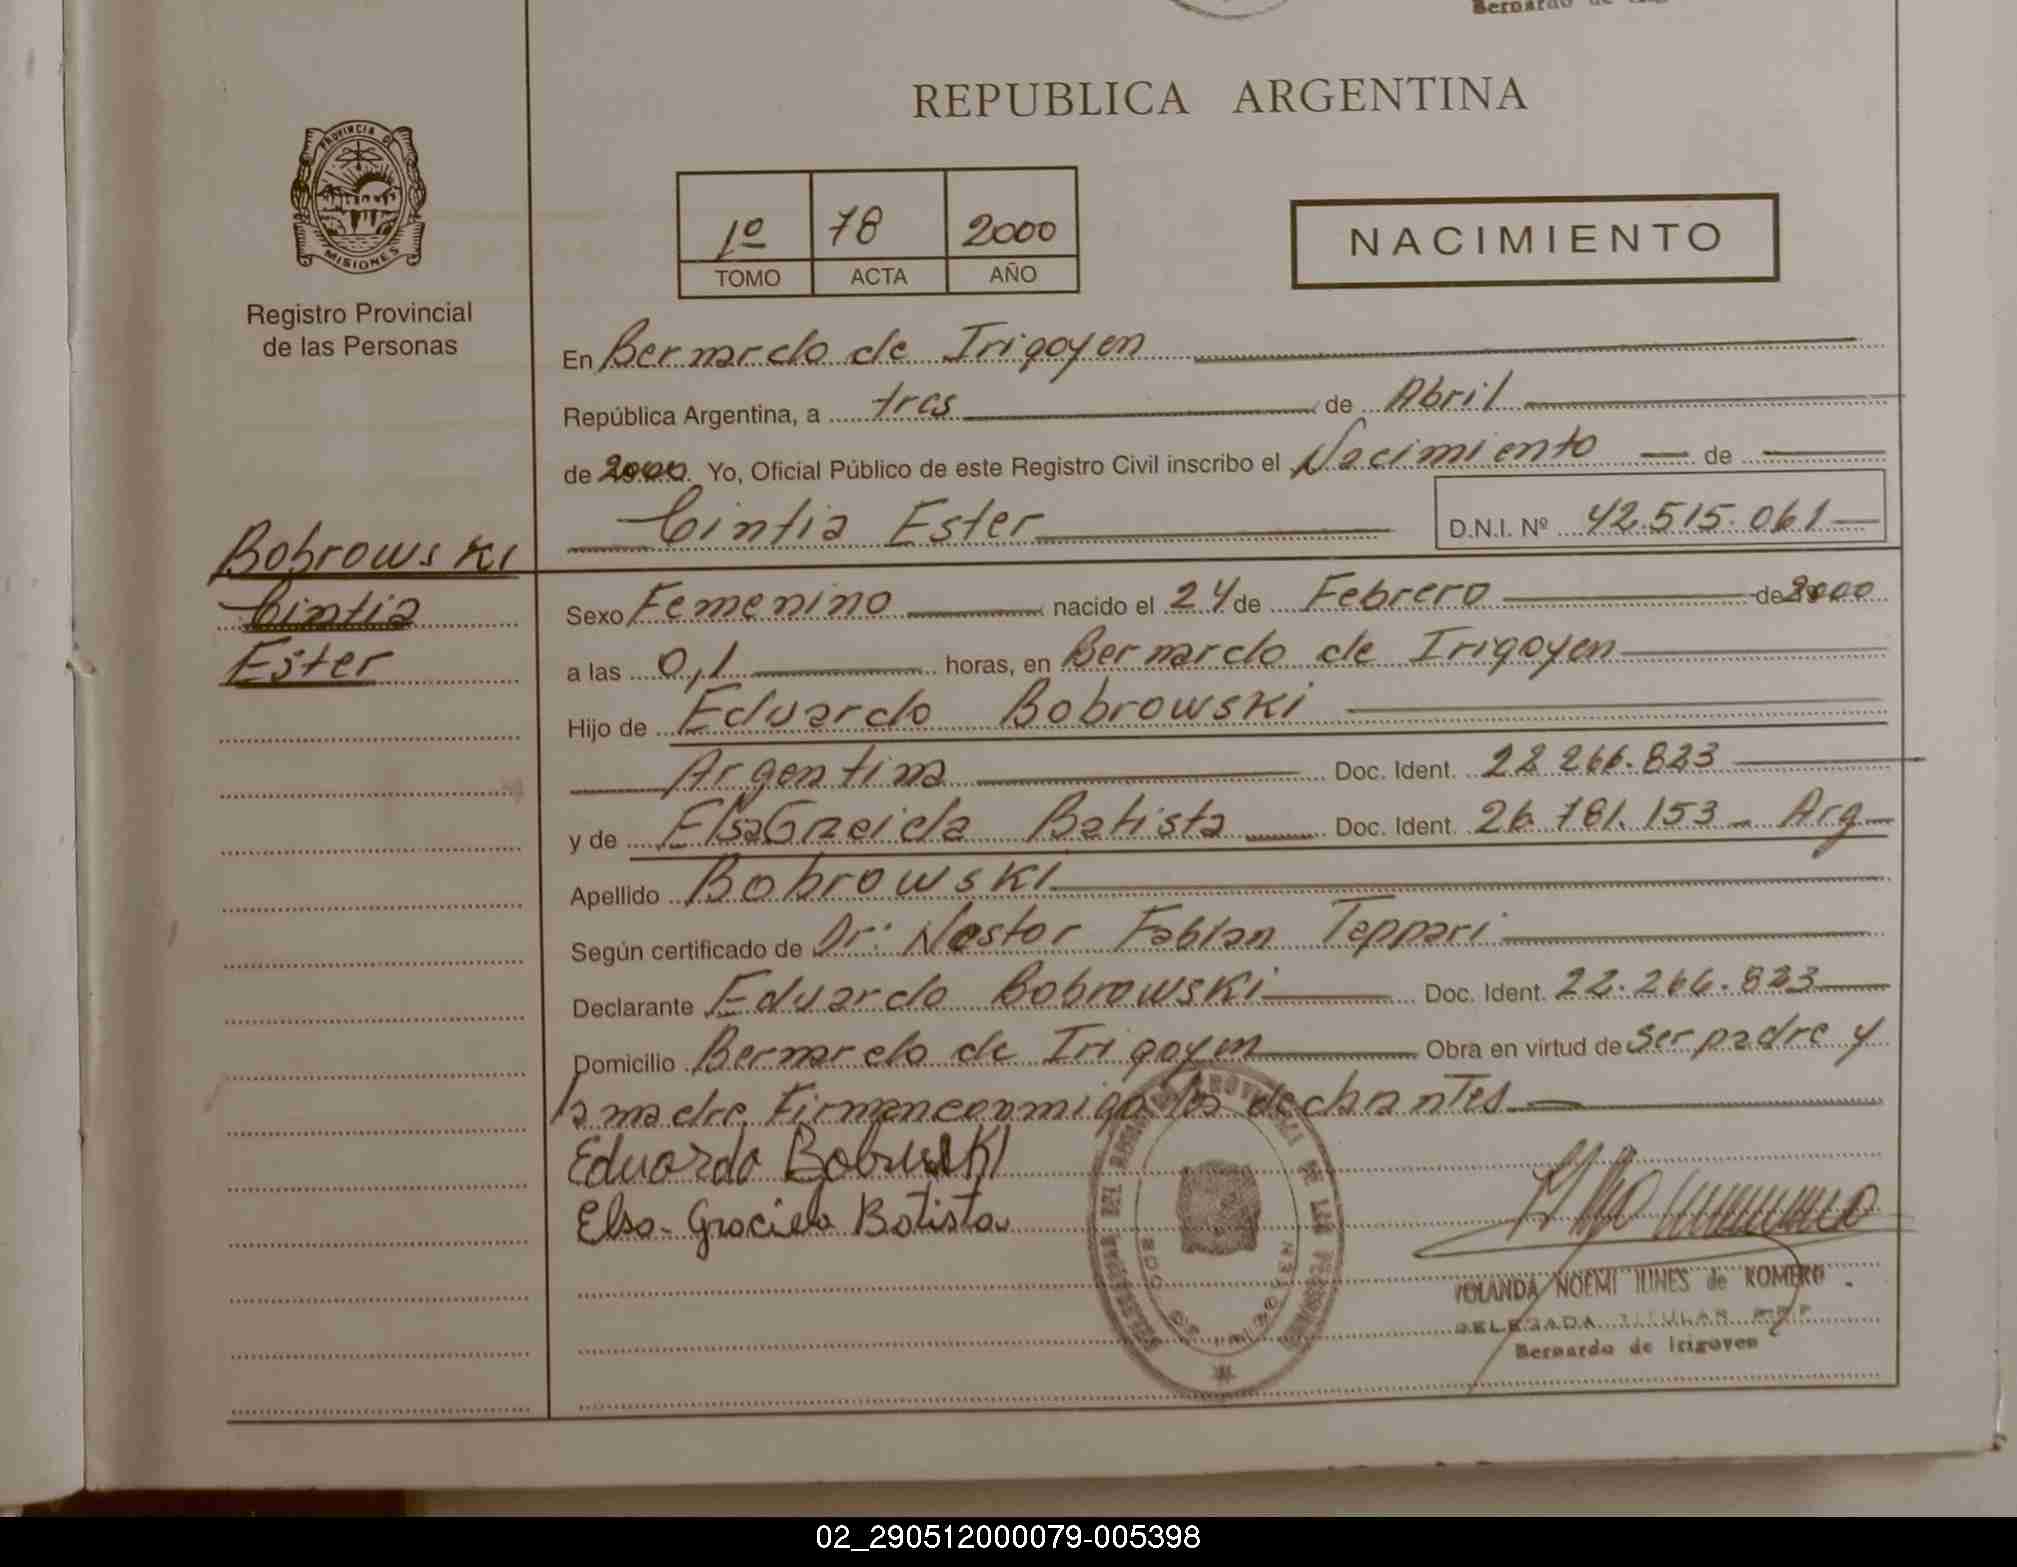 Bernardo de
REPUBLICA ARGENTINA
PROVINCIA DE
MISIONES
Registro Provincial
de las Personas
1º 78 2000
TOMO ACTA AÑO
NACIMIENTO
En Bernardo de Irigoyen
República Argentina, a tres de Abril
de 2000. Yo, Oficial Público de este Registro Civil inscribo el Nacimiento de
Cintia Ester D.N.I. Nº 42.515.061
Bobrowski
Cintia
Ester
Sexo Femenino nacido el 24 de Febrero de 2000
a las 0,1 horas, en Bernardo de Irigoyen
Hijo de Eduardo Bobrowski
Argentina Doc. Ident. 22 266.823
y de Elsa Graeida Batista Doc. Ident. 26.781.153 - Arg
Apellido Bobrowski
Según certificado de Dr: Nestor Fabian Teppari
Declarante Eduardo Bobrowski Doc. Ident. 22.266.823
Domicilio Bernardo de Irigoyen Obra en virtud de ser padre y
la madre. Firman conmigo los declarantes
Eduardo Bobrowski
Elsa Graciela Batista
YOLANDA NOEMI de ROMERO
DELEGADA TITULAR
Bernardo de Irigoyen
02_290512000079-005398